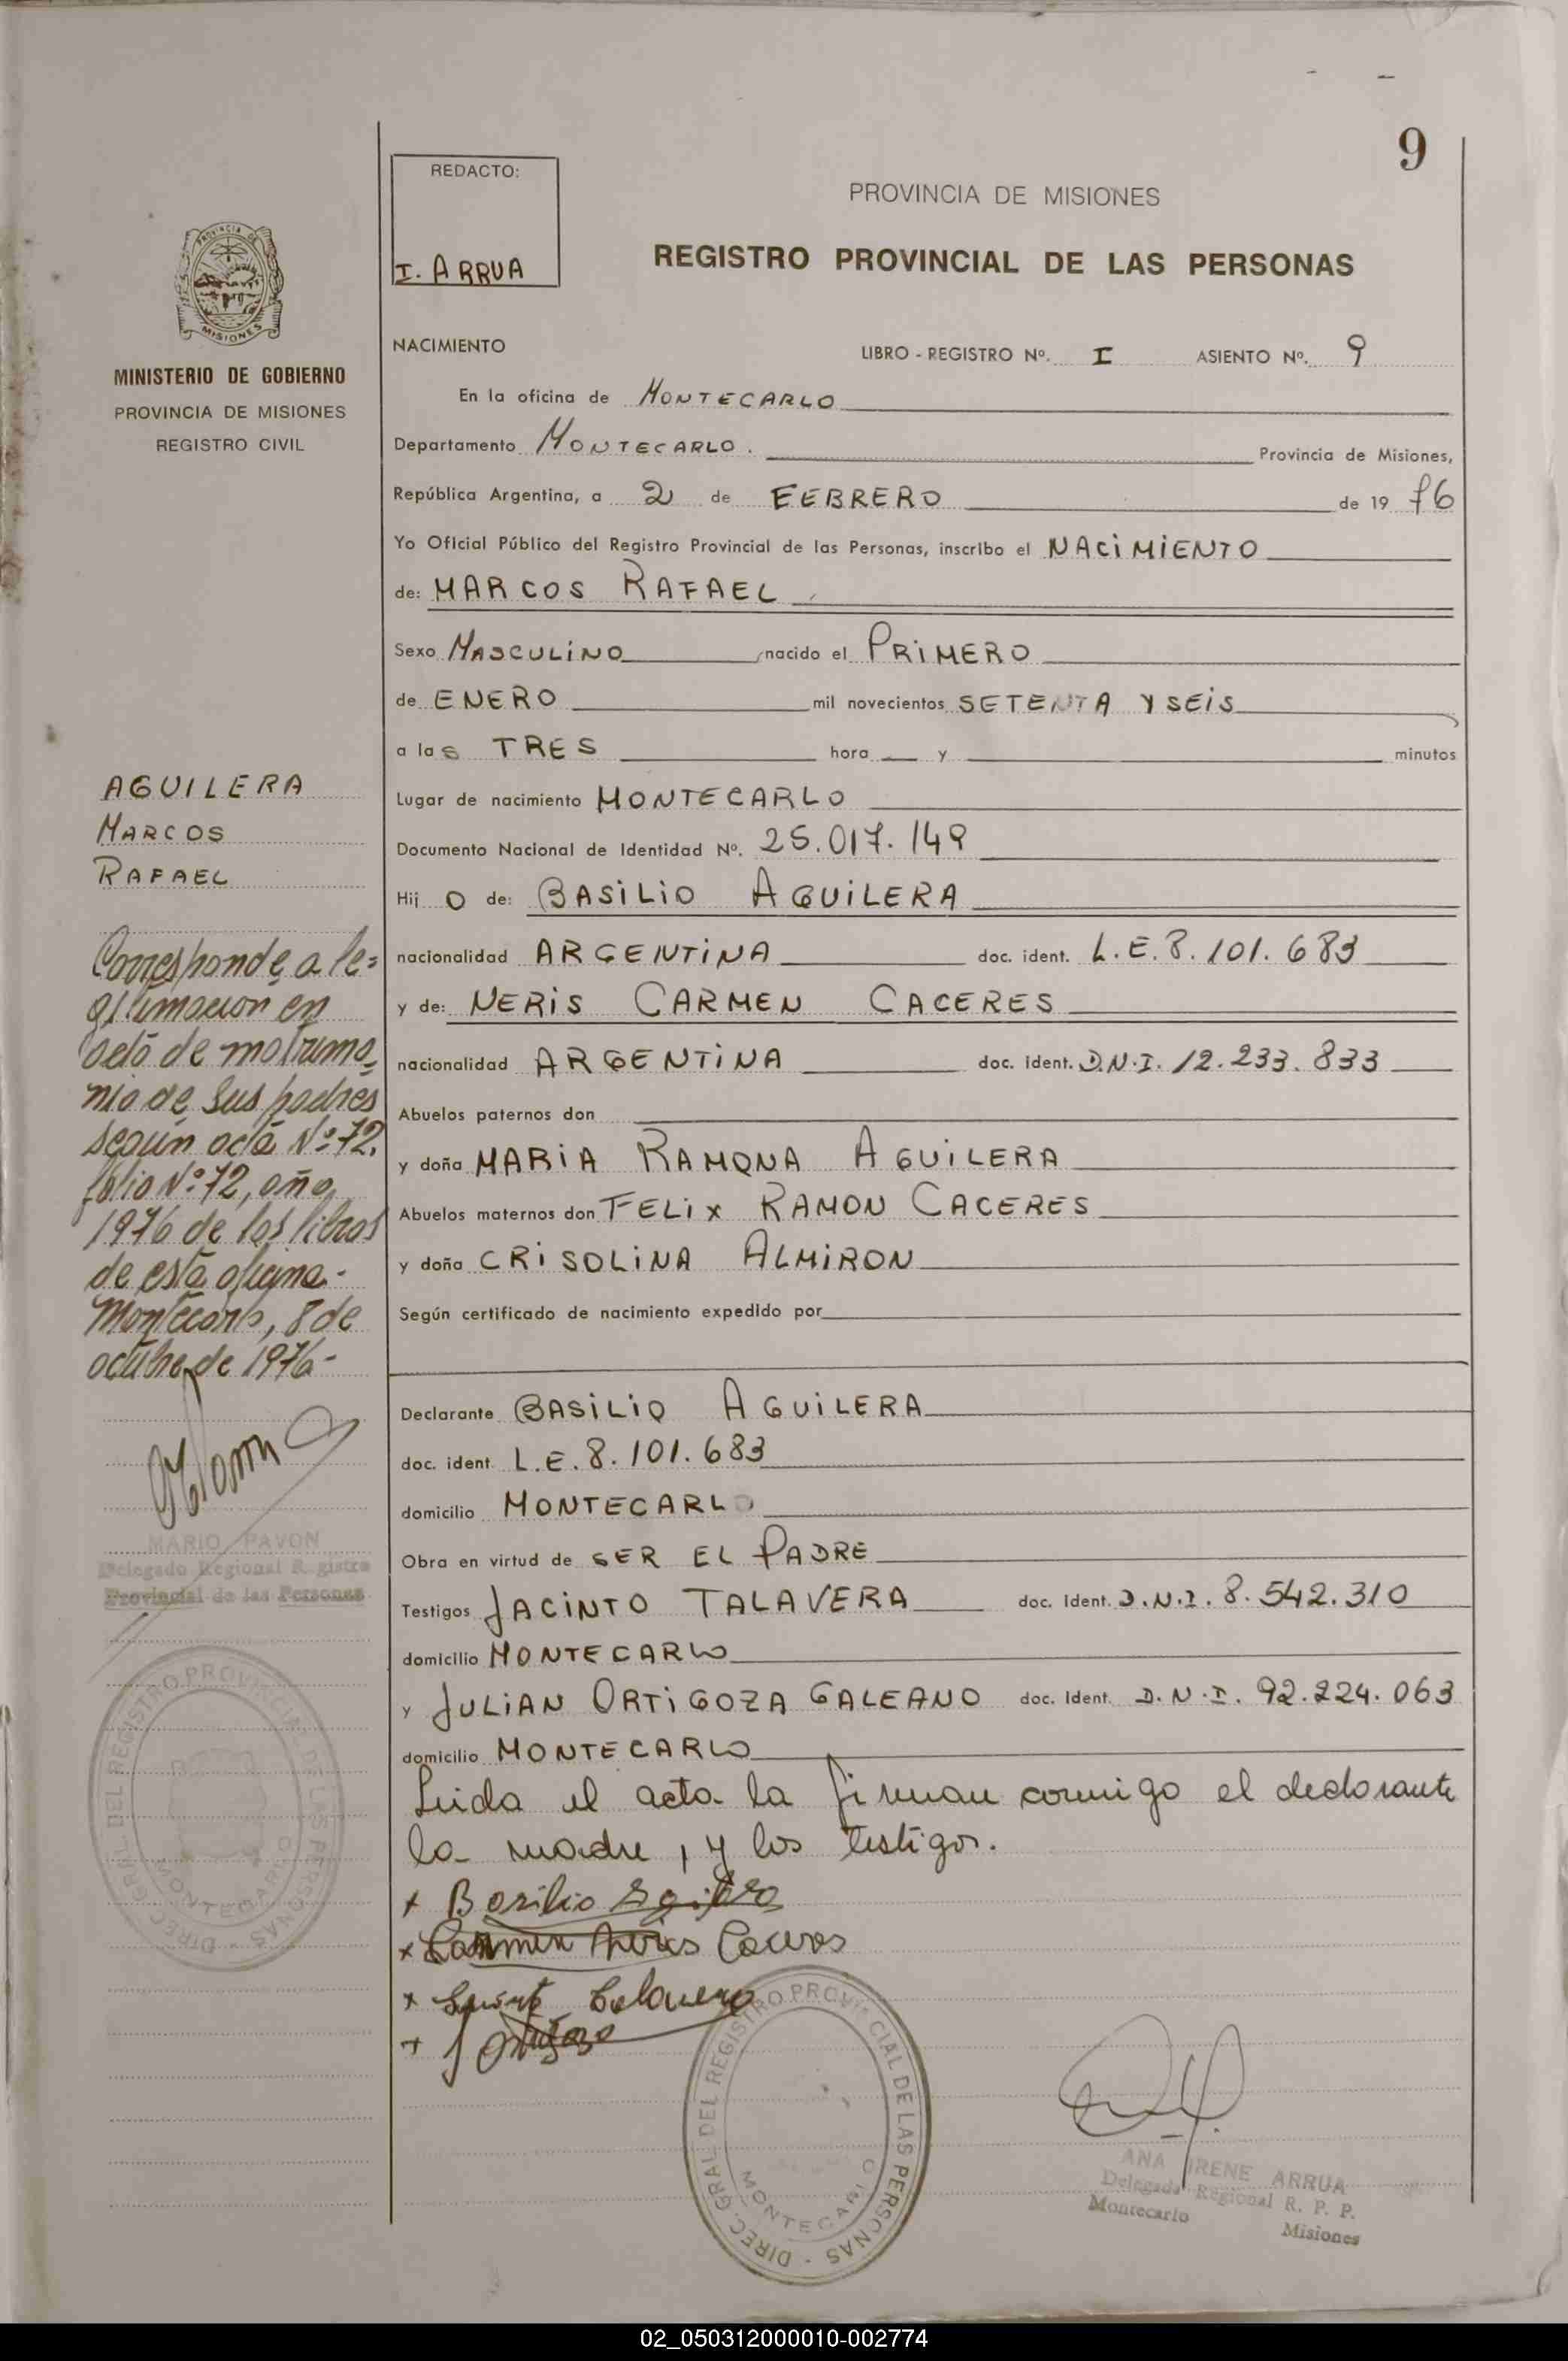 9
REDACTO:
I. ARRUA
PROVINCIA DE MISIONES
REGISTRO PROVINCIAL DE LAS PERSONAS
PROVINCIA DE
MISIONES
MINISTERIO DE GOBIERNO
PROVINCIA DE MISIONES
REGISTRO CIVIL
NACIMIENTO LIBRO - REGISTRO Nº. I ASIENTO Nº. 9
En la oficina de MONTECARLO
Departamento MONTECARLO. Provincia de Misiones,
República Argentina, a 2 de FEBRERO de 19 76
Yo Oficial Público del Registro Provincial de las Personas, inscribo el NACIMIENTO
de: MARCOS RAFAEL
Sexo MASCULINO nacido el PRIMERO
de ENERO mil novecientos SETENTA Y SEIS
a las TRES hora y minutos
Lugar de nacimiento MONTECARLO
Documento Nacional de Identidad Nº. 25.017.149
Hij O de: BASILIO AGUILERA
nacionalidad ARGENTINA doc. ident. L.E. 8.101.683
y de: NERIS CARMEN CACERES
nacionalidad ARGENTINA doc. ident. D.N.I. 12.233.833
Abuelos paternos don
y doña MARIA RAMONA AGUILERA
Abuelos maternos don FELIX RAMON CACERES
y doña CRISOLINA ALMIRON
Según certificado de nacimiento expedido por
Declarante BASILIO AGUILERA
doc. ident. L.E. 8.101.683
domicilio MONTECARLO
Obra en virtud de SER EL PADRE
Testigos JACINTO TALAVERA doc. ident. D.N.I. 8.542.310
domicilio MONTECARLO
y JULIAN ORTIGOZA GALEANO doc. ident. D.N.I. 92.224.063
domicilio MONTECARLO
Leida el acta la firman conmigo el declarante
la madre, y los testigos.
+ Basilio
+ Carmen Neris Caceres
+
+ J Ortigoza
AGUILERA
MARCOS
RAFAEL
Corresponde a le=
gitimacion en
acto de matrimo-
nio de sus padres
según acta Nº 72,
folio Nº 72, año
1976 de los libros
de esta oficina.-
Montecarlo, 8 de
octubre de 1976-
MARIO PAVON
Delegado Regional Registro
Provincial de las Personas
DIREC. GRAL. DEL REGISTRO PROVINCIAL DE LAS PERSONAS
MONTECARLO
DIREC. GRAL. DEL REGISTRO PROVINCIAL DE LAS PERSONAS
MONTECARLO
ANA IRENE ARRUA
Delegada Regional R. P. P.
Montecarlo Misiones
02_050312000010-002774